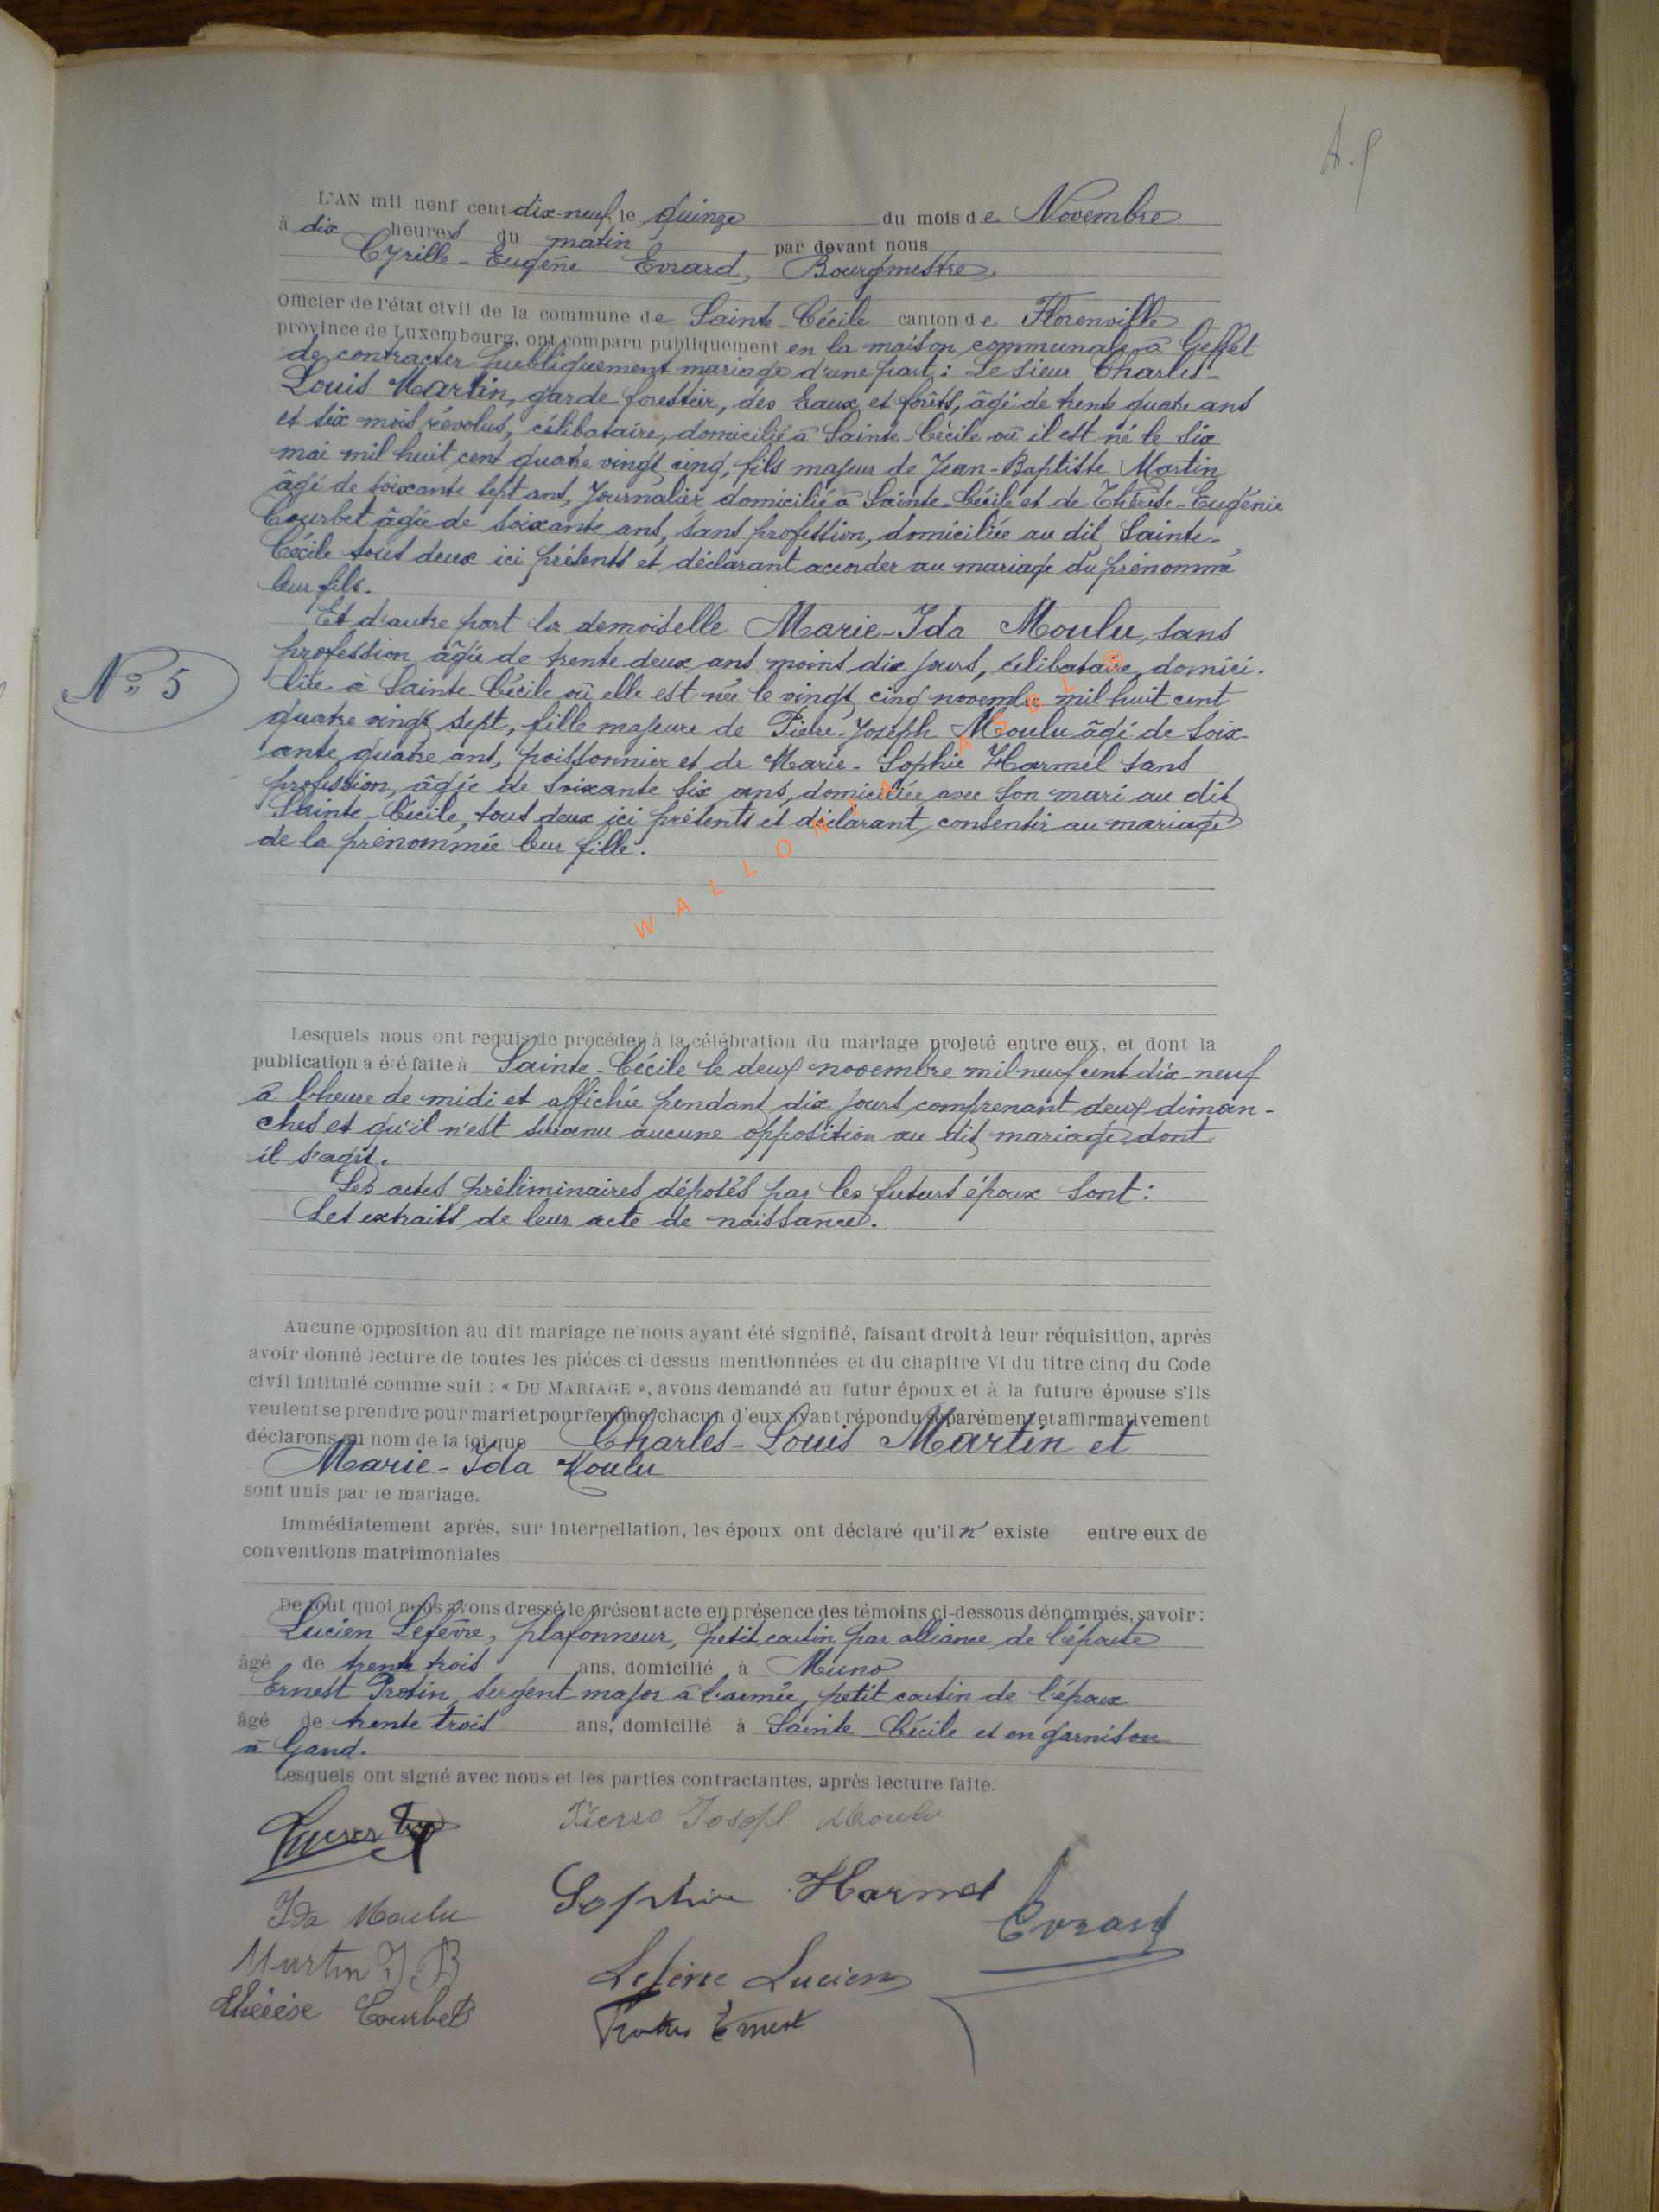 L'AN mil neuf cent dix-neuf, le quinze du mois de Novembre
à dix heures du matin par devant nous
Cyrille-Eugène Evrard, Bourgmestre,
Officier de l'état civil de la commune de Sainte-Cécile canton de Florenville
province de Luxembourg, ont comparu publiquement en la maison communale à l'effet
de contracter publiquement mariage d'une part : Le sieur Charles-
Louis Martin, garde forestier, des Eaux et forêts, âgé de trente quatre ans
et six mois révolus, célibataire, domicilié à Sainte-Cécile où il est né le six
mai mil huit cent quatre vingt cinq, fils majeur de Jean-Baptiste Martin
âgé de soixante sept ans, Journalier domicilié à Sainte-Cécile et de Thérèse-Eugénie
Courbet âgée de soixante ans, sans profession, domiciliée au dit Sainte-
Cécile tous deux ici présents et déclarant accorder au mariage du prénommé
leur fils.
Et d'autre part la demoiselle Marie-Ida Moulu, sans
profession, âgée de trente deux ans moins dix jours, célibataire, domici-
N° 5
liée à Sainte-Cécile où elle est née le vingt cinq novembre mil huit cent
quatre vingt sept, fille majeure de Pierre-Joseph Moulu âgé de soix-
ante quatre ans, poissonnier et de Marie-Sophie Harmel sans
profession, âgée de soixante six ans, domiciliée avec son mari au dit
Sainte-Cécile, tous deux ici présents et déclarant consentir au mariage
de la prénommée leur fille.
WALLONIA ASBL ©
Lesquels nous ont requis de procéder à la célébration du mariage projeté entre eux, et dont la
publication a été faite à Sainte-Cécile le deux novembre mil neuf cent dix-neuf
à l'heure de midi et affichée pendant dix jours comprenant deux diman-
ches et qu'il n'est survenu aucune opposition au dit mariage dont
il s'agit.
Les actes préliminaires déposés par les futurs époux sont :
Les extraits de leur acte de naissance.
Aucune opposition au dit mariage ne nous ayant été signifié, faisant droit à leur réquisition, après
avoir donné lecture de toutes les pièces ci-dessus mentionnées et du chapitre VI du titre cinq du Code
civil intitulé comme suit : « DU MARIAGE », avons demandé au futur époux et à la future épouse s'ils
veulent se prendre pour mari et pour femme, chacun d'eux ayant répondu séparément et affirmativement
déclarons au nom de la loi que Charles-Louis Martin et
Marie-Ida Moulu
sont unis par le mariage.
Immédiatement après, sur interpellation, les époux ont déclaré qu'il n'existe entre eux de
conventions matrimoniales
De tout quoi nous avons dressé le présent acte en présence des témoins ci-dessous dénommés, savoir :
Lucien Lefèvre, plafonneur, petit cousin par alliance, de l'épouse
âgé de trente trois ans, domicilié à Muno
Ernest Protin, sergent major à l'armée, petit cousin de l'époux
âgé de trente trois ans, domicilié à Sainte Cécile et en garnison
à Gand.
Lesquels ont signé avec nous et les parties contractantes, après lecture faite.
Pierre Joseph Moulu
Sophie Harmel
Ida Moulu
Evrard
Martin J B
Lefèvre Lucien
Thérèse Courbet
Ernest